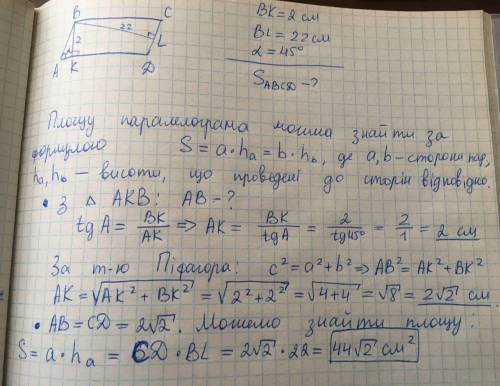 B C
22
2 L
A K D
BK = 2 см
BL = 22 см
α = 45°
S_ABCD - ?
Площу паралелограма можна знайти за
формулою S = a · hₐ = b · h_b, де a, b - сторони пар,
hₐ, h_b - висоти, що проведені до сторін відповідно.
• З △ AKB: AB - ?
tg A = BK/AK ⇒ AK = BK/tgA = 2/tg45° = 2/1 = 2 см
За т-ю Піфагора: c² = a² + b² ⇒ AB² = AK² + BK²
AK = √(AK² + BK²) = √(2² + 2²) = √(4+4) = √8 = 2√2 см.
• AB = CD = 2√2. Можемо знайти площу:
S = a · hₐ = CD · BL = 2√2 · 22 = 44√2 см²